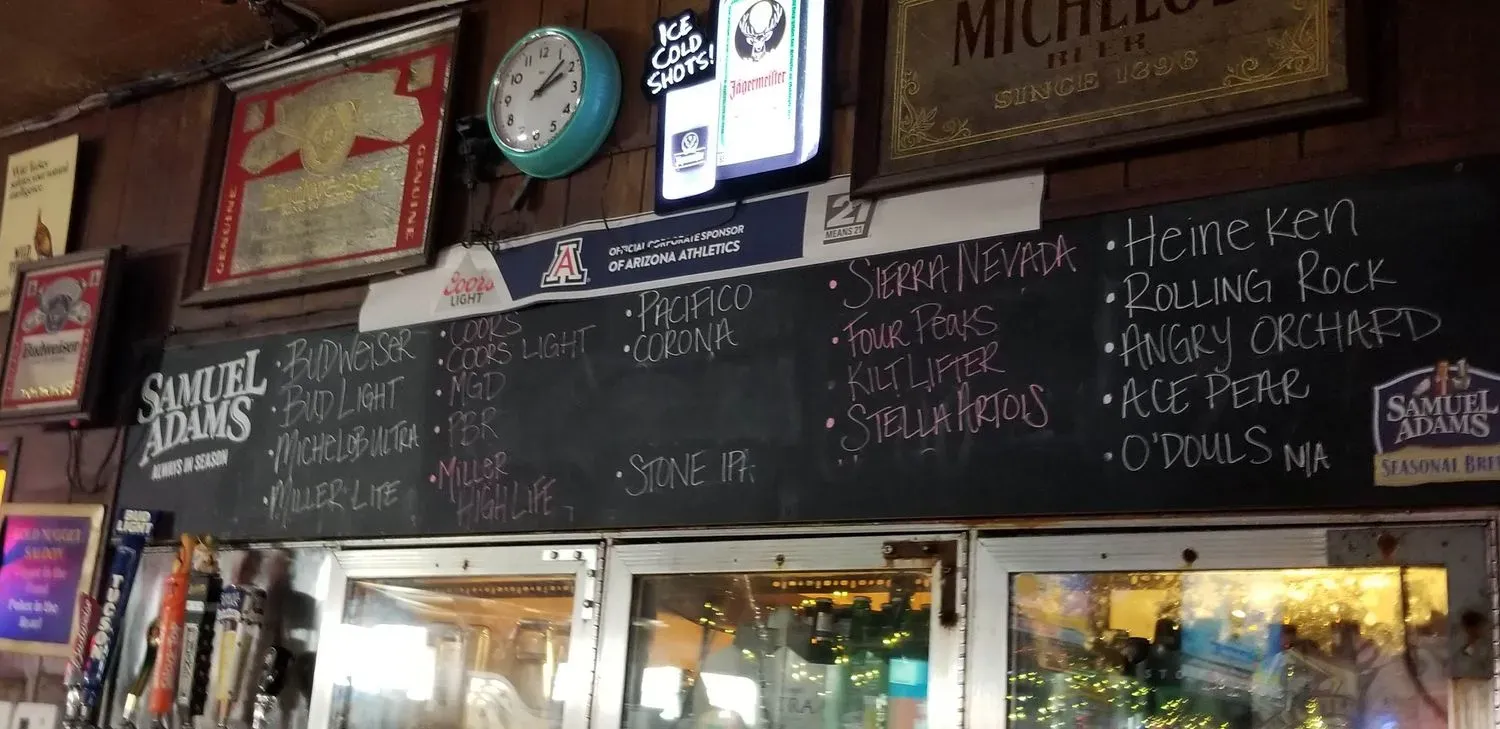 ICE
COLD
SHOTS!
Jägermeister
MICHELOB
BEER
SINCE 1896
Budweiser
GENUINE
GENUINE
Budweiser
Coors
LIGHT
A
OFFICIAL CORPORATE SPONSOR
OF ARIZONA ATHLETICS
21
MEANS 21
12
1
2
3
4
5
8
9
10
11
SAMUEL
ADAMS
ALWAYS IN SEASON
• BUDWEISER
• BUD LIGHT
• MICHELOB ULTRA
• MILLER LITE
• COORS
• COORS LIGHT
• MGD
• PBR
• MILLER
HIGH LIFE
• PACIFICO
• CORONA
• STONE IPA
• SIERRA NEVADA
• FOUR PEAKS
KILT LIFTER
• STELLA ARTOIS
• Heineken
• ROLLING ROCK
• ANGRY ORCHARD
• ACE PEAR
• O'DOULS N/A
SAMUEL
ADAMS
SEASONAL BRE
BUD
LIGHT
TUCSON
SALOON